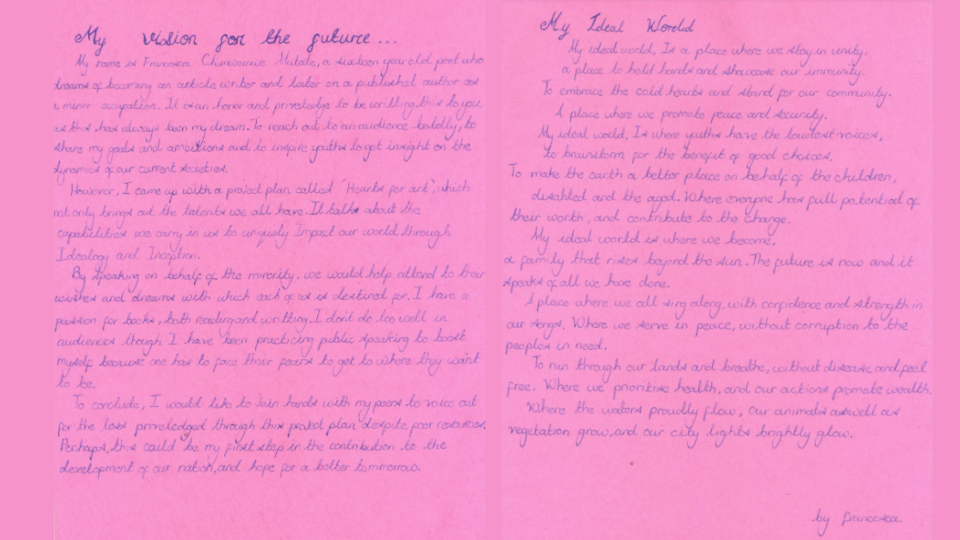 My vision for the future...
My name is Francesca Chimwemwe Mutale, a sixteen year old poet who
dreams of becoming an article writer and later on a published author as
a minor occupation. It is an honor and priveledge to be writting this to you,
as this has always been my dream. To reach out to an audience boldly, to
share my goals and ambitions and to inspire youths to get insight on the
dynamics of our current societies.
However, I came up with a project plan called "Hearts for art", which
not only brings out the talents we all have. It talks about the
capabilities we carry in us to uniquely Impact our world through
Ideology and Inception.
By speaking on behalf of the minority, we would help attend to their
wishes and dreams with which each of us is destined for. I have a
passion for books, both reading and writting. I don't do too well in
audiences though I have been practicing public speaking to boost
myself because one has to face their fears to get to where they want
to be.
To conclude, I would like to Join hands with my peers to voice out
for the less priveledged through this project plan, despite poor resources.
Perhaps, this could be my first step in the contribution to the
development of our nation, and hope for a better tommorrow.
My Ideal World
My ideal world, Is a place where we stay in unity.
a place to hold hands and showcase our immunity.
To embrace the cold hearts and stand for our community.
A place where we promote peace and security.
My ideal world, Is where youths have the loudest voices,
to brainstorm for the benefit of good choices.
To make the earth a better place on behalf of the children,
disabled and the aged. Where everyone has full potential of
their worth, and contribute to the change.
My ideal world is where we become,
a family that rises beyond the sun. The future is now and it
speaks of all we have done.
A place where we all sing along, with confidence and strength in
our songs. Where we serve in peace, without corruption to the
peoples in need.
To run through our lands and breathe, without disease and feel
free. Where we prioritise health, and our actions promote wealth.
Where the waters proudly flow, our animals aswell as
vegetation grow, and our city lights brightly glow.
by Francesca.